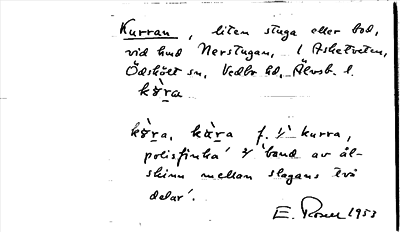 Kurran, liten stuga eller bod,
vid hmd Nerstugan, i Asketveten,
Ödskölt sn, Vedbo hd, Älvsb. l.
kòra
kòra, kàra f. 1/ 'kurra,
polisfinka' 2/ 'band av ål-
skinn mellan slagans två
delar'.
E. Rosen 1953